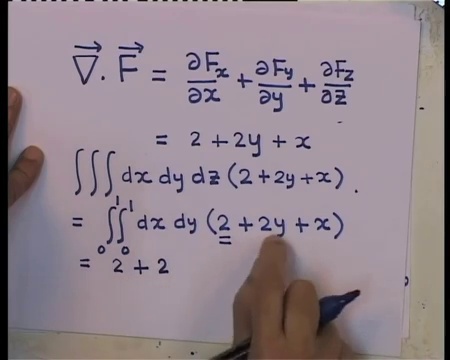 ∇⃗ . F⃗ = ∂Fx/∂x + ∂Fy/∂y + ∂Fz/∂z
= 2 + 2y + x
∫∫∫ dx dy dz (2 + 2y + x) .
= ∫₀¹∫₀¹ dx dy (2 + 2y + x)
= 2 + 2